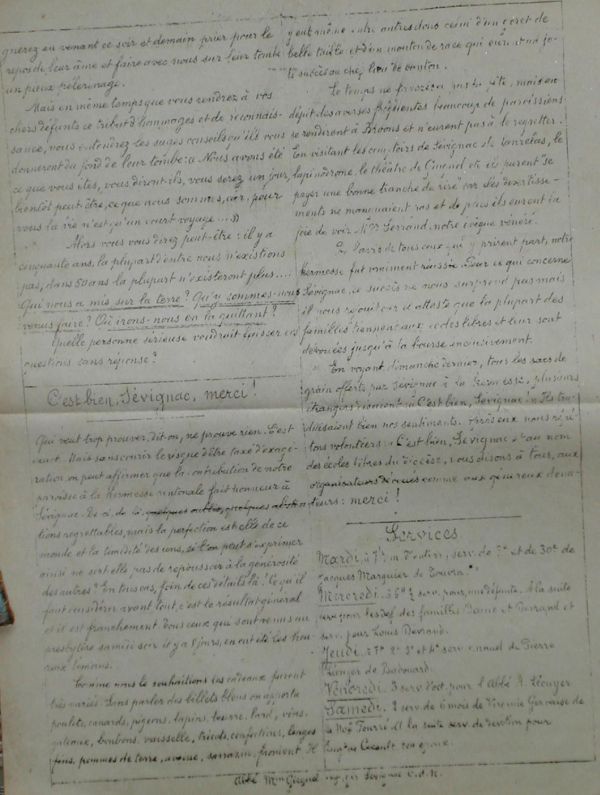 querez en venant ce soir et demain prier pour le
repos de leur âme et faire avec nous sur leur tombe
un pieux pèlerinage.
Mais en même temps que vous rendrez à vos
chers défunts ce tribut d'hommages et de reconnais-
sance, vous entendrez les sages conseils qu'ils vous
donneront du fond de leur tombe : « Nous avons été
ce que vous êtes, vous diront-ils, vous serez un jour,
bientôt peut-être, ce que nous sommes, car, pour
vous la vie n'est qu'un court voyage... »
Alors vous vous direz peut-être : il y a
cinquante ans, la plupart d'entre nous n'existions
pas, dans 50 ans la plupart n'existeront plus....
Qui nous a mis sur la terre ? Qu'y sommes-nous
venus faire ? Où irons-nous en la quittant ?
Quelle personne sérieuse voudrait laisser ces
questions sans réponse ?
C'est bien, Sévignac, merci !
Qui veut trop prouver, dit-on, ne prouve rien. C'est
exact. Mais sans courir le risque d'être taxé d'exagé-
ration on peut affirmer que la contribution de notre
paroisse à la kermesse cantonale fait honneur à
Sévignac. De ci, de là, quelques
tions regrettables, mais la perfection est-elle de ce
monde et la timidité des uns, si l'on peut s'exprimer
ainsi ne sert-elle pas de repoussoir à la générosité
des autres ? En tus cas, foin de ces détails là. Ce qu'il
faut considérer avant tout, c'est le résultat général
et il est franchement doux ceux qui sont venus au
presbytère samedi soir il y a 8 jours, en ont été les heu-
reux témoins.
Comme nous le souhaitions les cadeaux furent
très variés. Sans parler des billets bleus on apporta
poulets, canards, pigeons, lapins, beurre, lard, vins,
gateaux, bonbons, vaisselle, tricots, confections, langes
fins, pommes de terre, avoine, sarrazin, froment. Il
y eut même entre autres dons celui d'un goret de
belle taille et d'un mouton de race qui eurent un jo-
li succès au chef lieu de canton.
Le temps ne favorisa pas la fête, mais en
dépit des averses fréquentes beaucoup de paroissiens
se rendirent à Broons et n'eurent pas à le regretter.
En visitant les comptoirs de Sévignac et de Lanrelas, le
lapindrome, le théâtre de Guignol etc ils purent se
payer une bonne tranche de rire car les divertisse-
ments ne manquaient pas et de plus ils eurent la
joie de voir Mgr Serrand, notre évêque vénéré.
De l'avis de tous ceux qui y prirent part, notre
kermesse fut vraiment réussie. Pour ce qui concerne
Sévignac, ce succès ne nous surprend pas mais
il nous réjouit car il atteste que la plupart des
familles tiennent aux écoles libres et leur sont
dévouées jusqu'à la bourse inclusivement.
En voyant dimanche dernier, tous les sacs de
grain offerts par Sévignac à la kermesse, plusieurs
étrangers disaient : « C'est bien, Sévignac ! » Ils tra-
duisaient bien nos sentiments. Après eux nous répé-
tons volontiers « C'est bien, Sévignac » et au nom
des écoles libres du diocèse, nous disons à tous, aux
organisateurs comme aux généreux dona-
teurs : merci !
Services
Mardi. à 7h serv. de 7e et de 30e de
Jacques Marquier de
Mercredi. serv. pour un défunt. A la suite
serv. pour les déf. des familles et Durand et
serv. pour Louis Durand.
Jeudi. et 4e serv. annuel de Pierre
de
Vendredi. 3 serv d'oct. pour l'Abbé
Samedi. 1 serv de 6 mois de Virginie Gervaise de
la A la suite serv. de dévotion pour
son époux.
Abbé